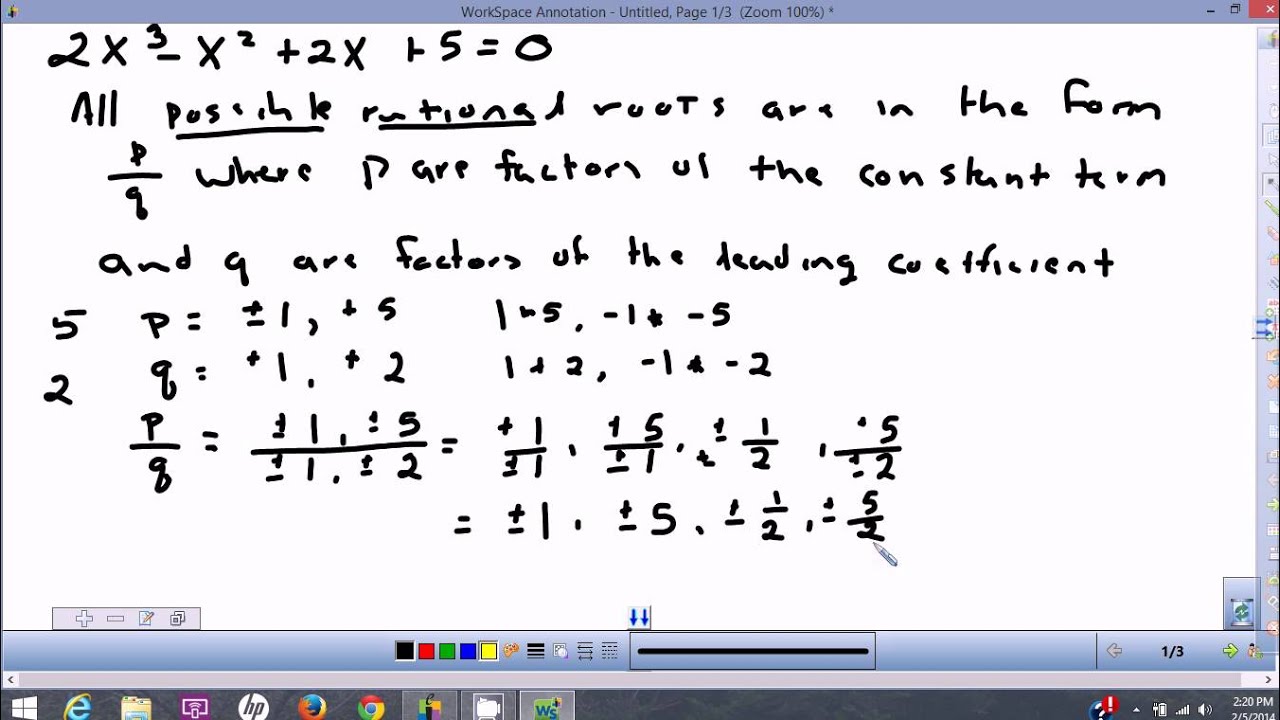 WorkSpace Annotation - Untitled, Page 1/3 (Zoom 100%) *
2x³ - x² + 2x + 5 = 0
All possible rational roots are in the form
p/q where p are factors of the constant term
and q are factors of the leading coefficient
5 p = ±1, + 5 1 * 5, -1 * -5
2 q = +1, + 2 1 * 2, -1 * -2
p/q = ±1, ±5 / ±1, ±2 = +1/±1, ±5/±1, ±1/2, 5/±2
= ±1, ±5, ±1/2, ±5/2
1/3
hp
Ws
2:20 PM
2/5/2014